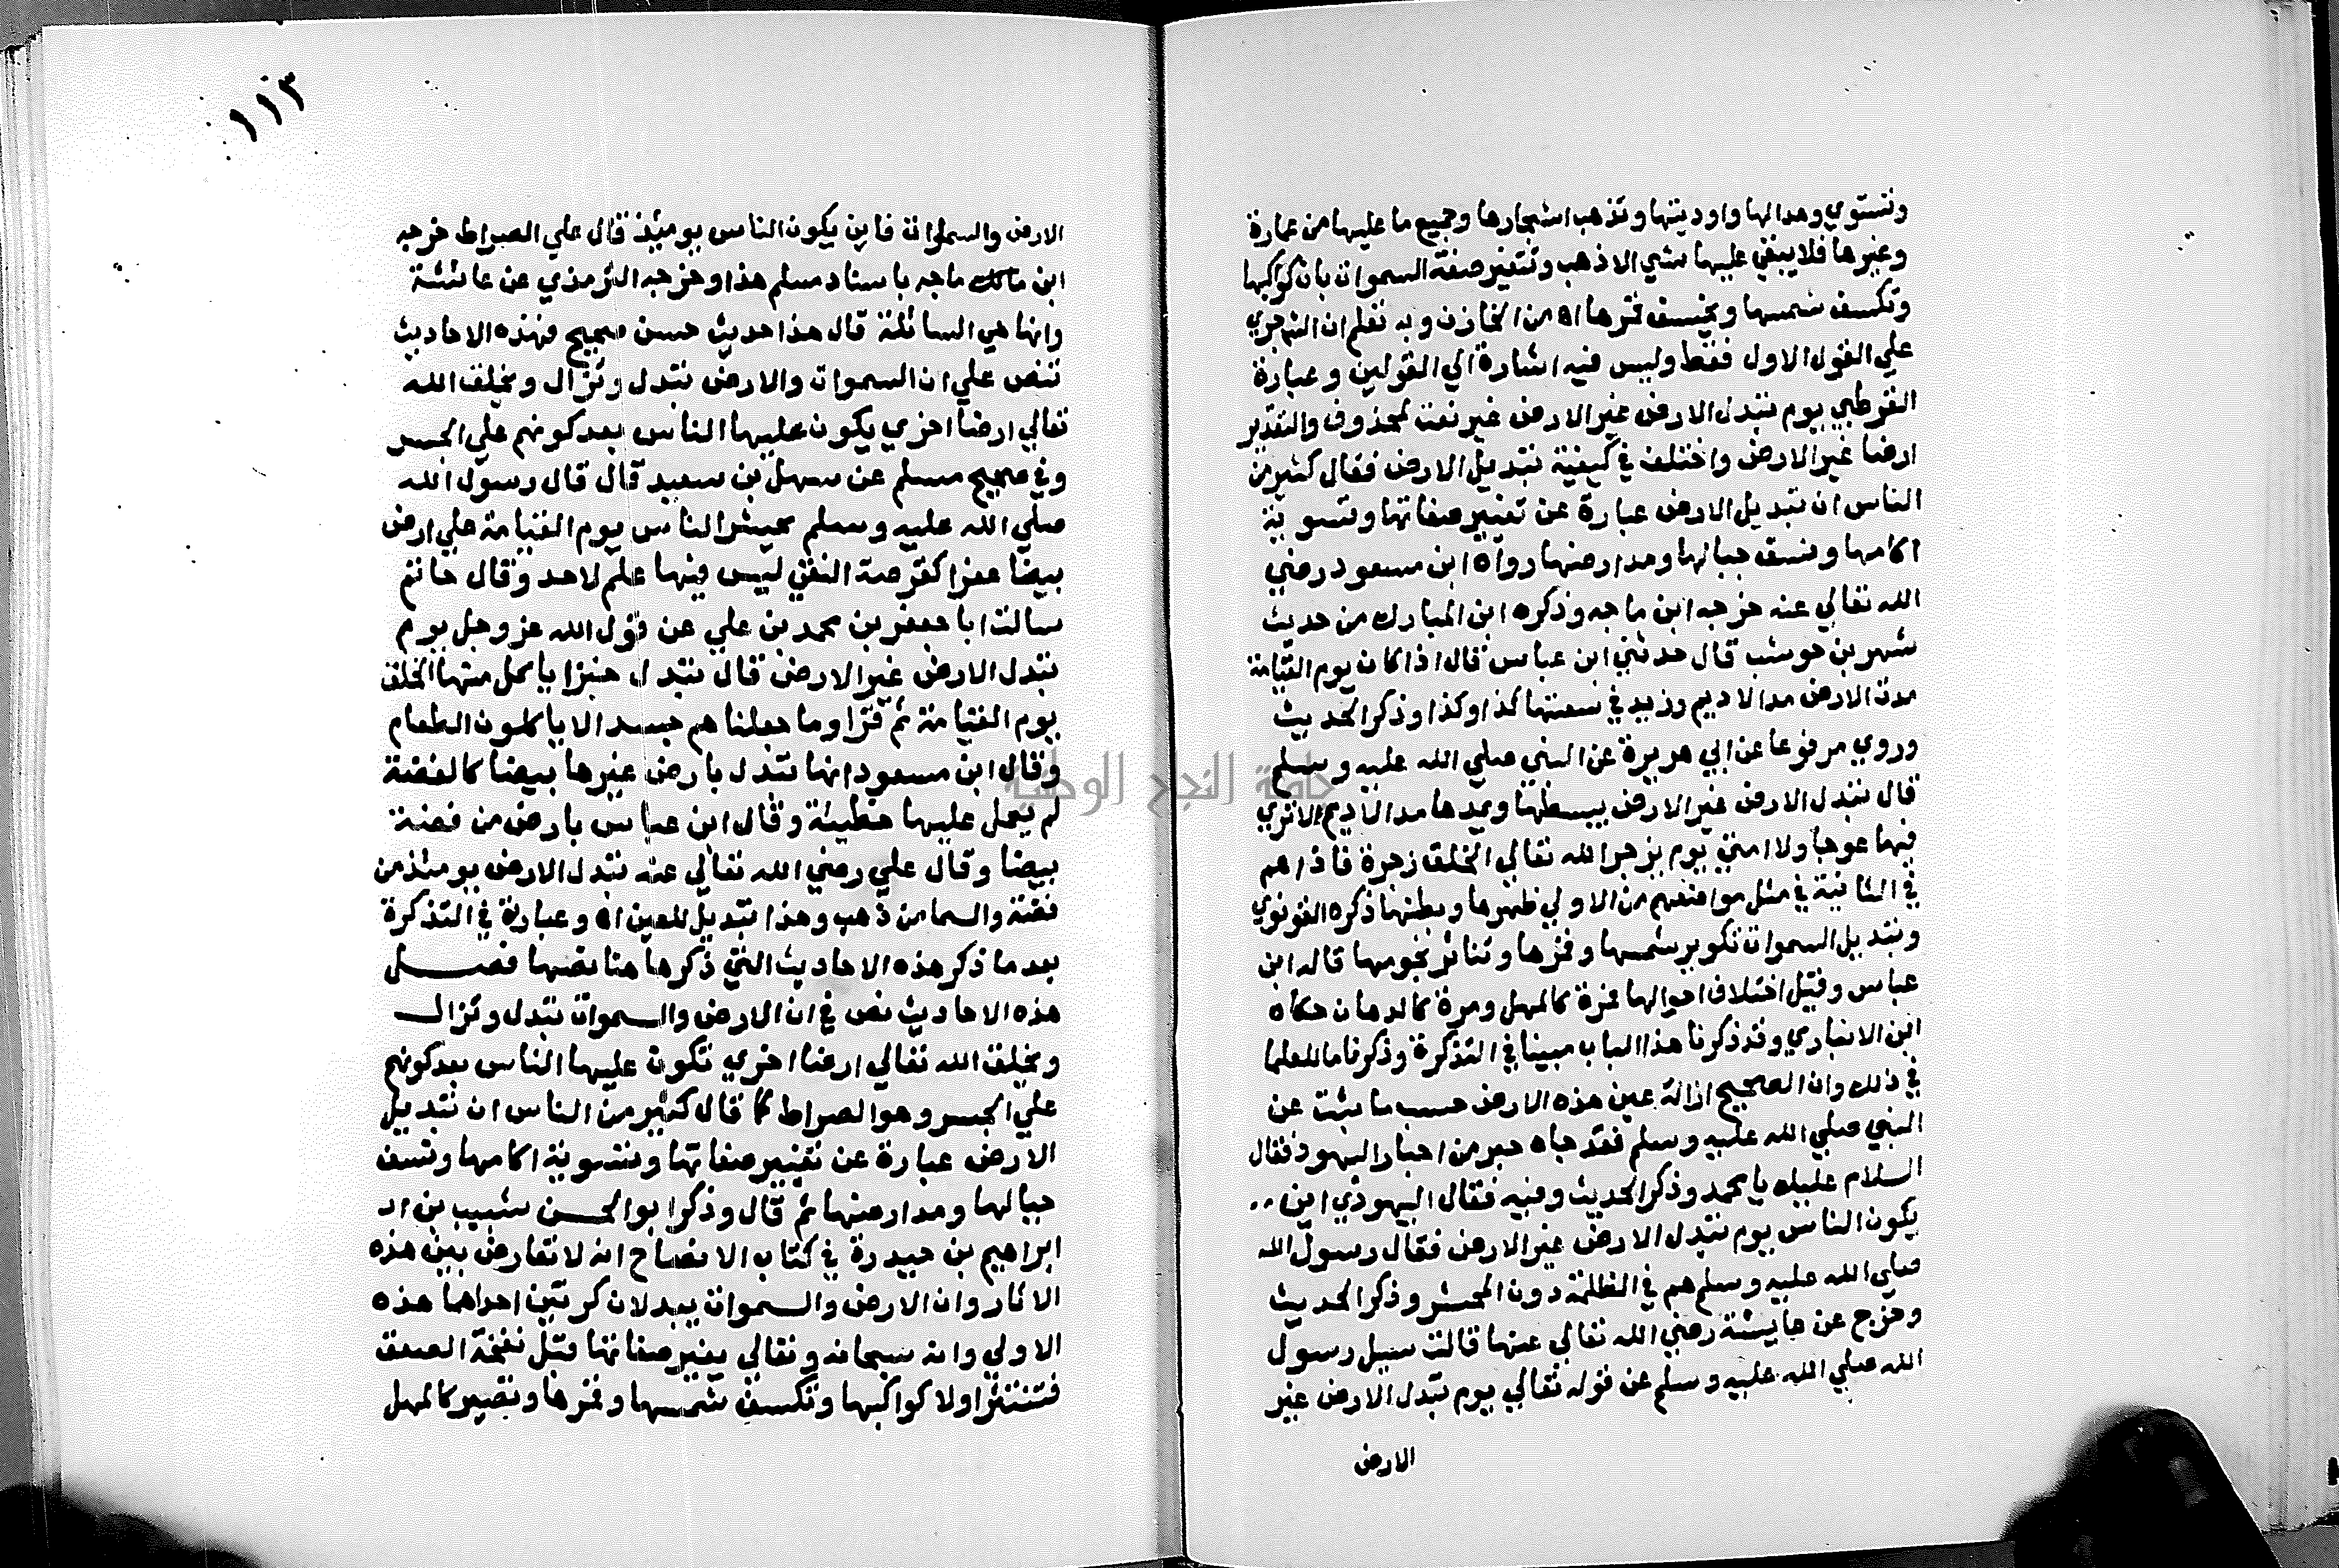 وتستوي وهدالها واوديتها وتذهب اشجارها وجميع ما عليها من عمارة
وغيرها فلا يبقي عليها شي الا ذهب وتتغير صفة السموات بان كواكبها
وتكسف شمسها ويخسف قمرها اه من الخازن وبه تعلم ان الش جري
علي القول الاول فقط وليس فيه اشارة الي القولين وعبارة
القرطبي يوم تبدل الارض غير الارض غير نعت لمحذوف والتقدير
ارضا غير الارض واختلف في كيفية تبديل الارض فقال كثير من
الناس ان تبديل الارض عبارة عن تغيير صفاتها وتسوية
اكامها ونسف جبالها ومد ارضها رواه ابن مسعود رضي
الله تعالي عنه خرجه ابن ماجه وذكره ابن المبارك من حديث
شهر بن حوشب قال حدثني ابن عباس قال اذا كان يوم القيامة
مدت الارض مد الاديم وزيد في سعتها كذا وكذا وذكر الحديث
وروي مرفوعا عن ابي هريرة عن النبي صلي الله عليه وسلم
قال تبدل الارض غير الارض يبسطها ويمدها مد الاديم لا تري
فيها عوجا ولا امتي يوم يزجر الله تعالي الخلق زجرة فاذا هم
في الثانية في مثل مواضعهم من الاولي ظهرها وبطنها ذكره الغزنوي
وتبديل السموات تكوير شمسها وقمرها وتناثر نجومها قاله ابن
عباس وقيل اختلاف احوالها فمرة كالمهل ومرة كالدهان حكاه
ابن الانباري وقد ذكرنا هذا الباب مبينا في التذكرة وذكرنا ما للعلما
في ذلك وان الصحيح ازالة عين هذه الارض حسب ما يثبت عن
النبي صلي الله عليه وسلم فقد جاه حبر من احبار اليهود فقال
السلام عليك يا محمد وذكر الحديث وفيه فقال اليهودي اين
يكون الناس يوم تبدل الارض غير الارض فقال رسول الله
صلي الله عليه وسلم هم في الظلمة دون المحشر وذكر الحديث
وخرج عن عايشة رضي الله تعالي عنها قالت سيل رسول
الله صلي الله عليه وسلم عن قوله تعالي يوم تبدل الارض غير
الارض
١١٣
الارض والسموات فاين يكون الناس يوميذ قال علي الصراط خرجه
ابن مالك ماجه باسناد مسلم هذا وخرجه الترمذي عن عائشة
وانها هي السائلة قال هذا حديث حسن صحيح فهذه الاحاديث
تنص علي ان السموات والارض تبدل وتزال ويخلق الله
تعالي ارضا اخري يكون عليها الناس بعد كونهم علي الجسر
وفي صحيح مسلم عن سهل بن سعيد قال قال رسول الله
صلي الله عليه وسلم يحشر الناس يوم القيامة علي ارض
بيضا عفرا كقرصة النقي ليس فيها علم لاحد وقال جابر
سالت ابا جعفر بن محمد بن علي عن قول الله عز وجل يوم
تبدل الارض غير الارض قال تبدل خبزا ياكل منها الخلق
يوم القيامة ثم قرا وما جعلناهم جسدا لا ياكلون الطعام
وقال ابن مسعود انها تتدل بارض غيرها بيضا كالفضة
لم يعمل عليها خطيئة وقال ابن عباس بارض من فضة
بيضا وقال علي رضي الله تعالي عنه تبدل الارض يومئذ من
فضة والسما من ذهب وهذا تبديل للعين اه وعبارة في التذكرة
بعد ما ذكر هذه الاحاديث التي ذكرها هنا نصها فصل
هذه الاحاديث نص في ان الارض والسموات تبدل وتزال
ويخلق الله تعالي ارضا اخري تكون عليها الناس بعد كونهم
علي الجسر وهو الصراط كما قال كثير من الناس ان تبديل
الارض عبارة عن تغيير صفاتها وتسوية اكامها ونسف
جبالها ومد ارضها ثم قال وذكر ابو الحسن شبيب بن
ابراهيم بن حيدرة في كتاب الافصاح انه لا تعارض بين هذه
الاثار وان الارض والسموات يبدلان كرتين احداهما هذه
الاولي وانه سبحانه وتعالي يغير صفاتها قبل نفخة الصعق
فتنتثر اولا كواكبها وتكسف شمسها وقمرها وتصير كالمهل
جامعة النجاح الوطنية